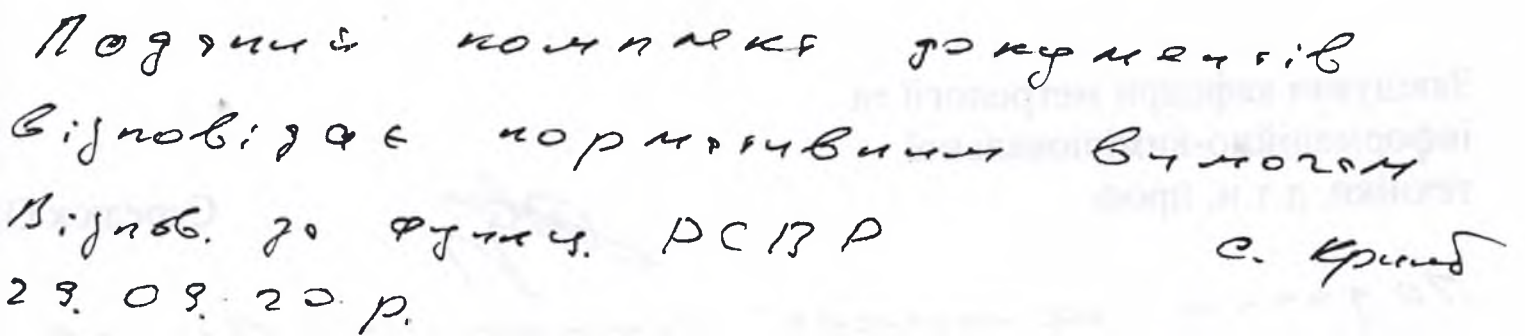 Поданий комплект документів
відповідає нормативним вимогам
Відпов. до функц. РСВР С. Криль
29.09.20 р.